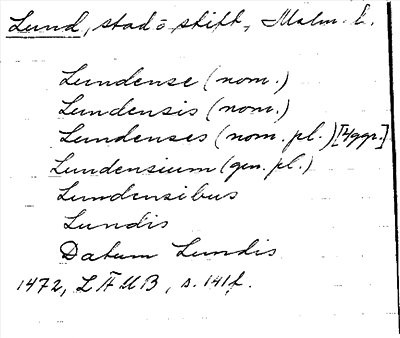 Lund, stad o. stift, Malm. l.
Lundense (nom.)
Lundensis (nom.)
Lundenses (nom. pl.) [2 ggr.]
Lundensium (gen. pl.)
Lundensibus
Lundis
Datum Lundis
1472, LÄUB, s. 141f.